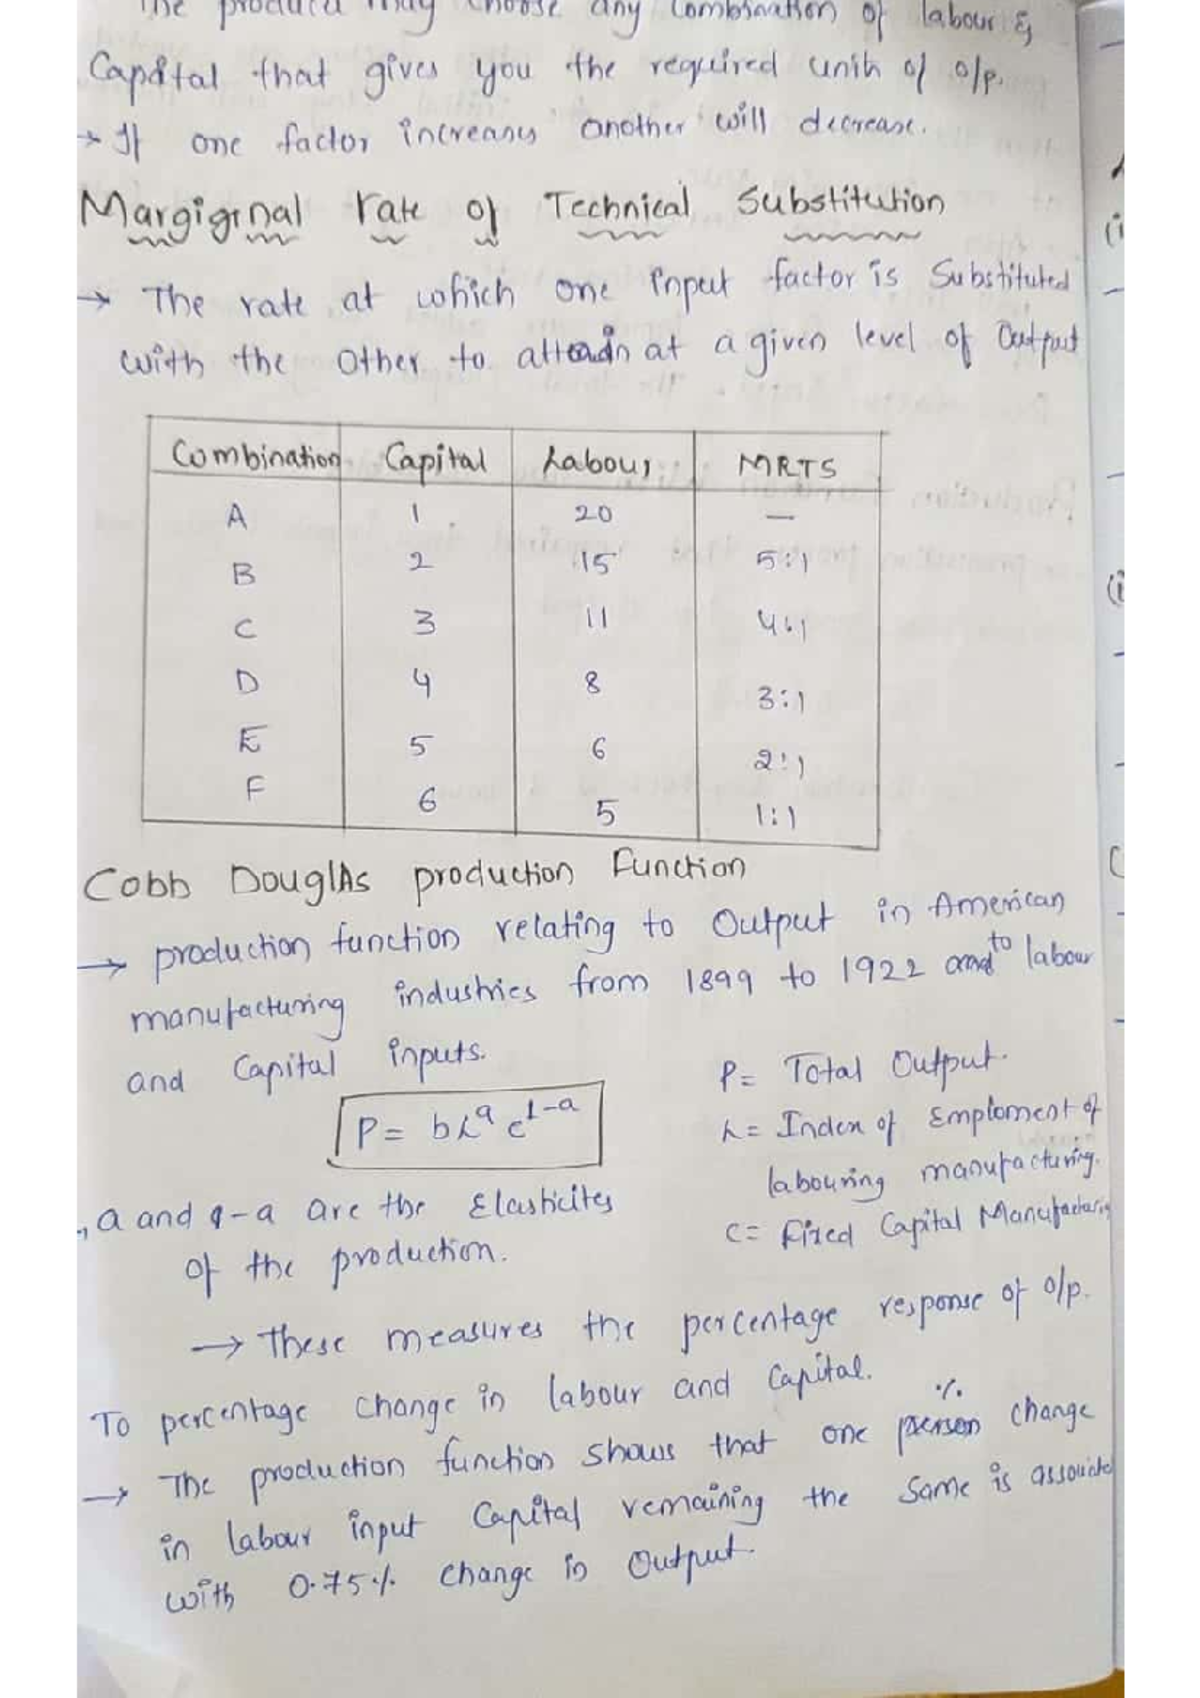 The producer may choose any combination of labour &
Capital that gives you the required units of o/p.
→ If one factor increases another will decrease.
Margiginal rate of Technical Substitution
→ The rate at which one input factor is Substituted
with the other to attain at a given level of Output
Combination Capital Labour MRTS
A 1 20 —
B 2 15 5:1
C 3 11 4:1
D 4 8 3:1
E 5 6 2:1
F 6 5 1:1
Cobb DouglAs production Function
→ production function relating to Output in American
manufacturing industries from 1899 to 1922 to labour
and Capital inputs.
P = bL^a c^1-a
P = Total Output.
L = Index of Emploment of
labouring manufacturing.
C = Fixed Capital Manufacturing
, a and 1-a are the Elasticites
of the production.
→ These measures the percentage response of o/p.
To percentage change in labour and Capital.
→ The production function shows that one % change
in labour input Capital remaining the same is associated
with 0.75% change in Output.